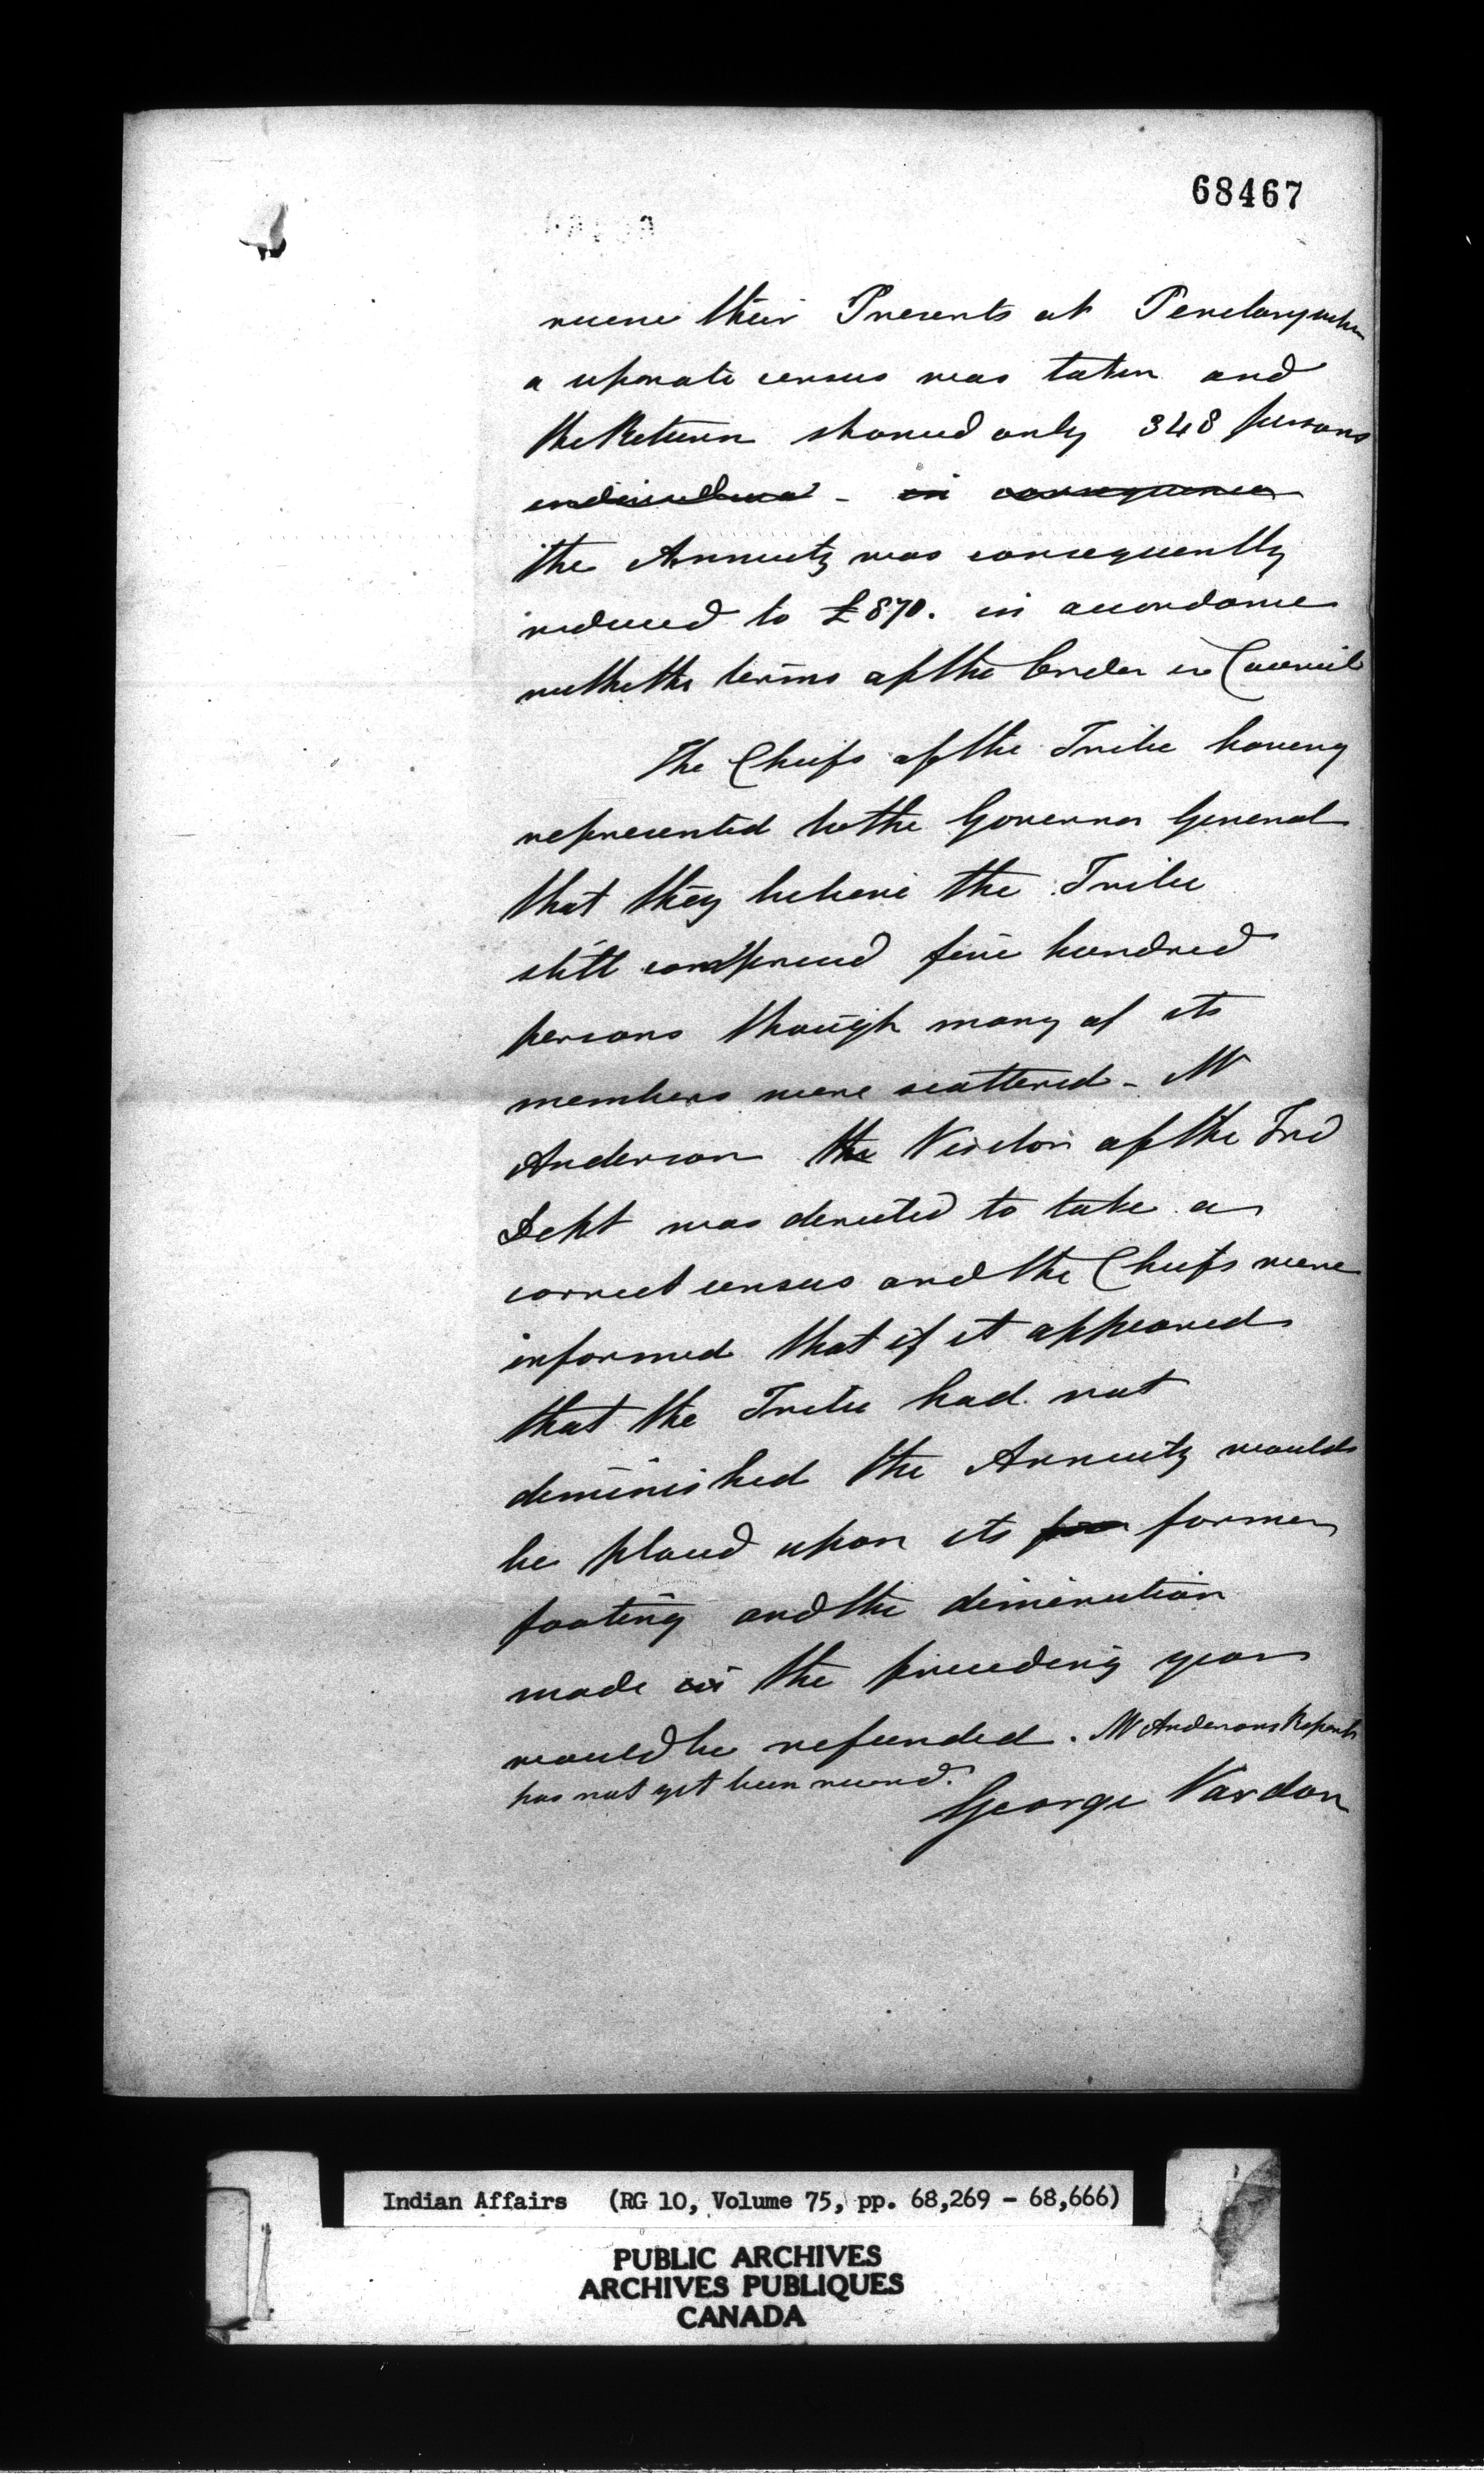 68467
receive their Presents at Penetanguishene
a separate census was taken and
the Return showed only 348 persons
individuals - in consequence
the Annuity was consequently
reduced to £870. in accordance
with the terms of the Order in Council
The Chiefs of the Tribe having
represented to the Governor General
that they believe the Tribe
still comprised five hundred
persons though many of its
members were scattered - Mr
Anderson the Visitor of the Ind
Dept was directed to take a
correct census and the Chiefs were
informed that if it appeared
that the Tribe had not
diminished the Annuity would
be placed upon its for former
footing and the diminution
made in the preceding year
would be refunded. Mr Andersons Report
has not yet been received.
George Vardon
Indian Affairs (RG 10, Volume 75, pp. 68,269 - 68,666)
PUBLIC ARCHIVES
ARCHIVES PUBLIQUES
CANADA